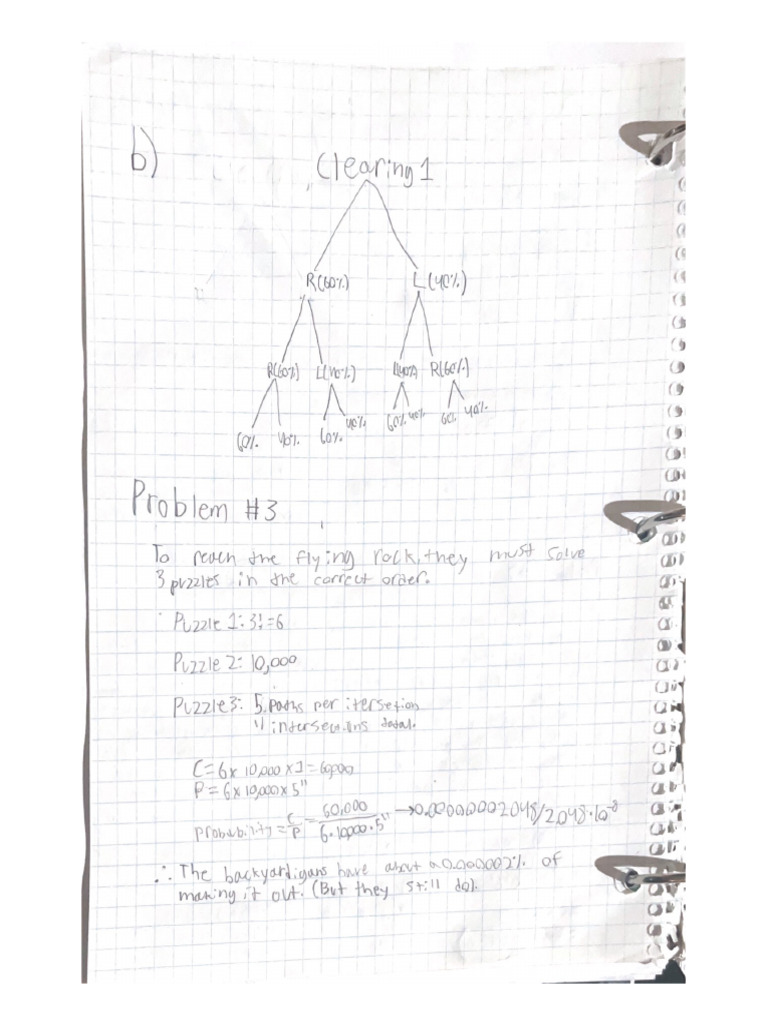 b)
Clearing 1
R(60%) L(40%)
R(60%) L(40%) L(40%) R(60%)
60% 40% 60% 40% 60% 40% 60% 40%
Problem #3
To reach the flying rock, they must solve
3 puzzles in the correct order.
Puzzle 1: 3! = 6
Puzzle 2: 10,000
Puzzle 3: 5 paths per itersetion
11 intersections total.
C = 6 x 10,000 x 1 = 60,000
P = 6 x 10,000 x 5¹¹
Probability = C/P = 60,000/6·10,000·5¹¹ → 0.00000002048/2.048·10⁻⁸
∴ The backyardigans have about a 0.000002% of
making it out. (But they still do).